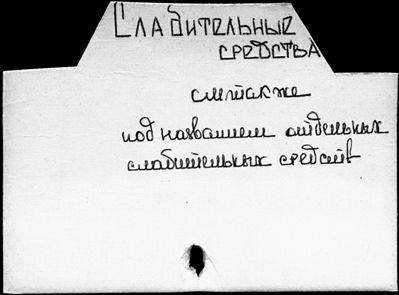 Слабительные
средства
см. также
под названием отдельных
слабительных средств